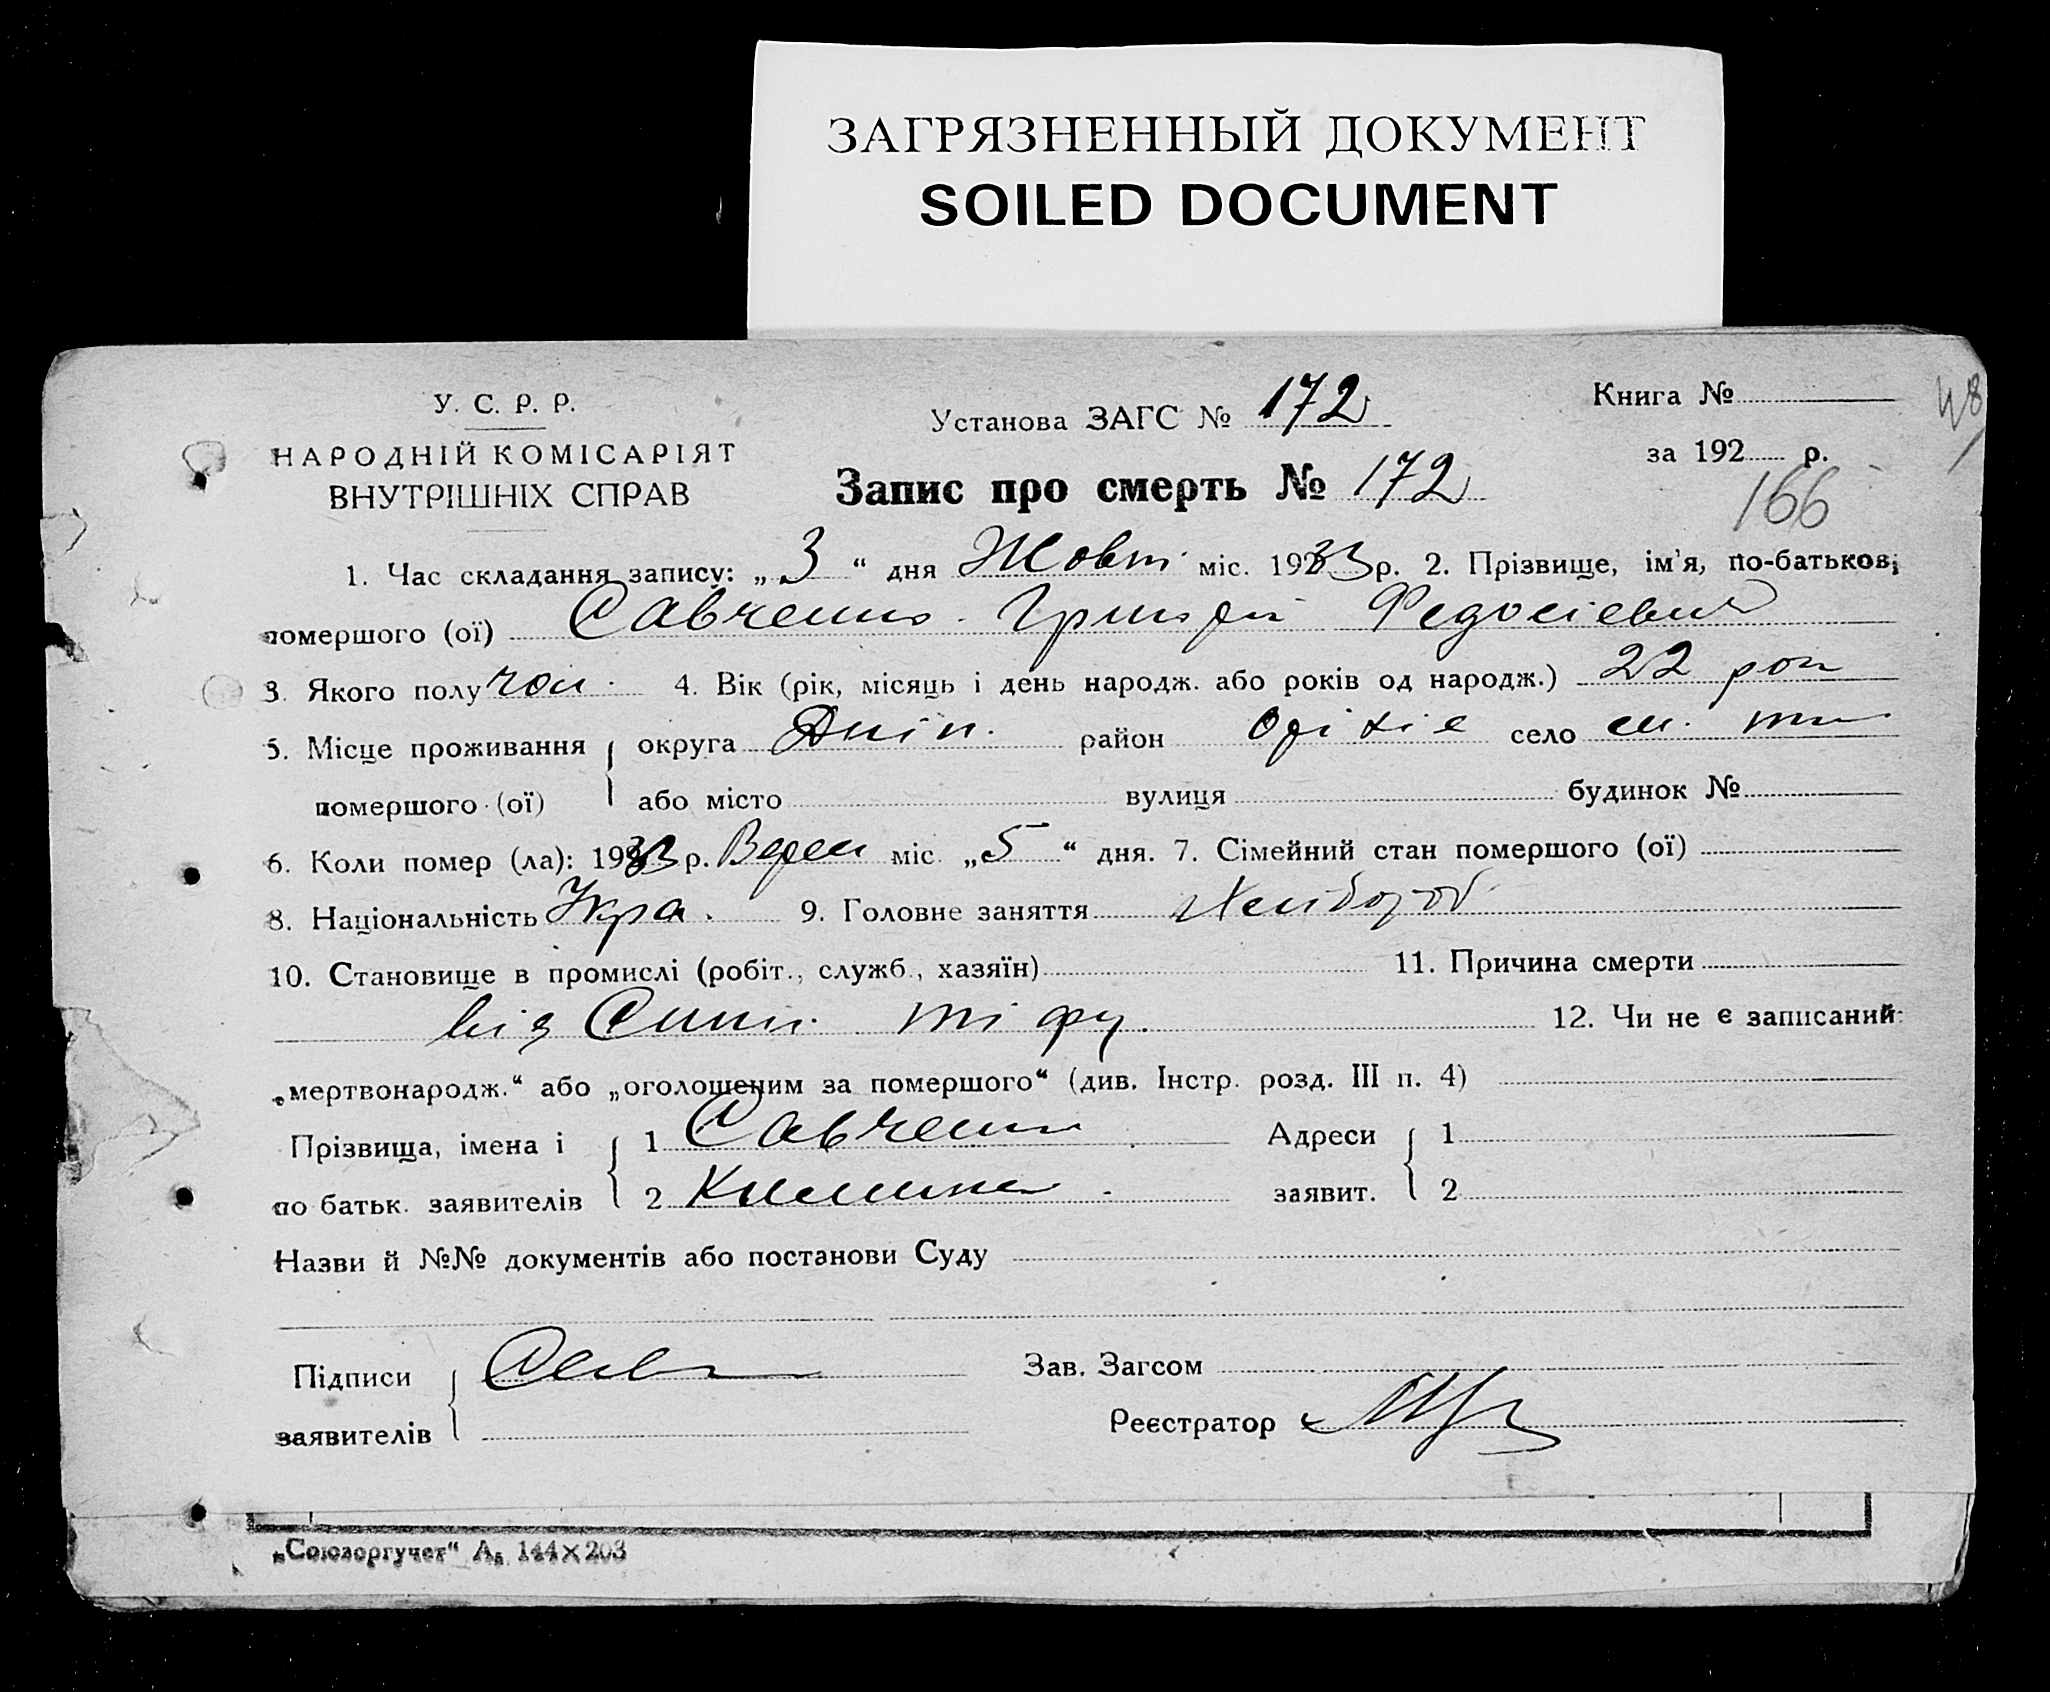 ЗАГРЯЗНЕННЫЙ ДОКУМЕНТ
SOILED DOCUMENT
У. С. Р. Р.
НАРОДНІЙ КОМІСАРІЯТ
ВНУТРІШНІХ СПРАВ
Установа ЗАГС № 172
Запис про смерть № 172
Книга №
за 192 р.
48
166
1. Час складання запису: „3“ дня Жовт міс. 1933 р. 2. Прізвище, ім'я, по-батькові
помершого (ої) Савченко Григорій Федосієвич
3. Якого полу чол. 4. Вік (рік, місяць і день народж. або років од народж.) 22 рок
5. Місце проживання округа Дніп. район Оріхів село
помершого (ої) або місто вулиця будинок №
6. Коли помер (ла): 1933 р. Верес міс. „5“ дня. 7. Сімейний стан помершого (ої)
8. Національність Укра. 9. Головне заняття Хлібороб
10. Становище в промислі (робіт., служб., хазяїн) 11. Причина смерти
від Сипн. тіфу. 12. Чи не є записаний:
„мертвонародж.“ або „оголошеним за помершого“ (див. Інстр. розд. III п. 4)
Прізвища, імена і 1 Савченко Адреси 1
по батьк. заявителів 2 заявит. 2
Назви й №№ документів або постанови Суду
Підписи Савч Зав. Загсом
заявителів Реєстратор
„Союзоргучет“ А₅ 144×203